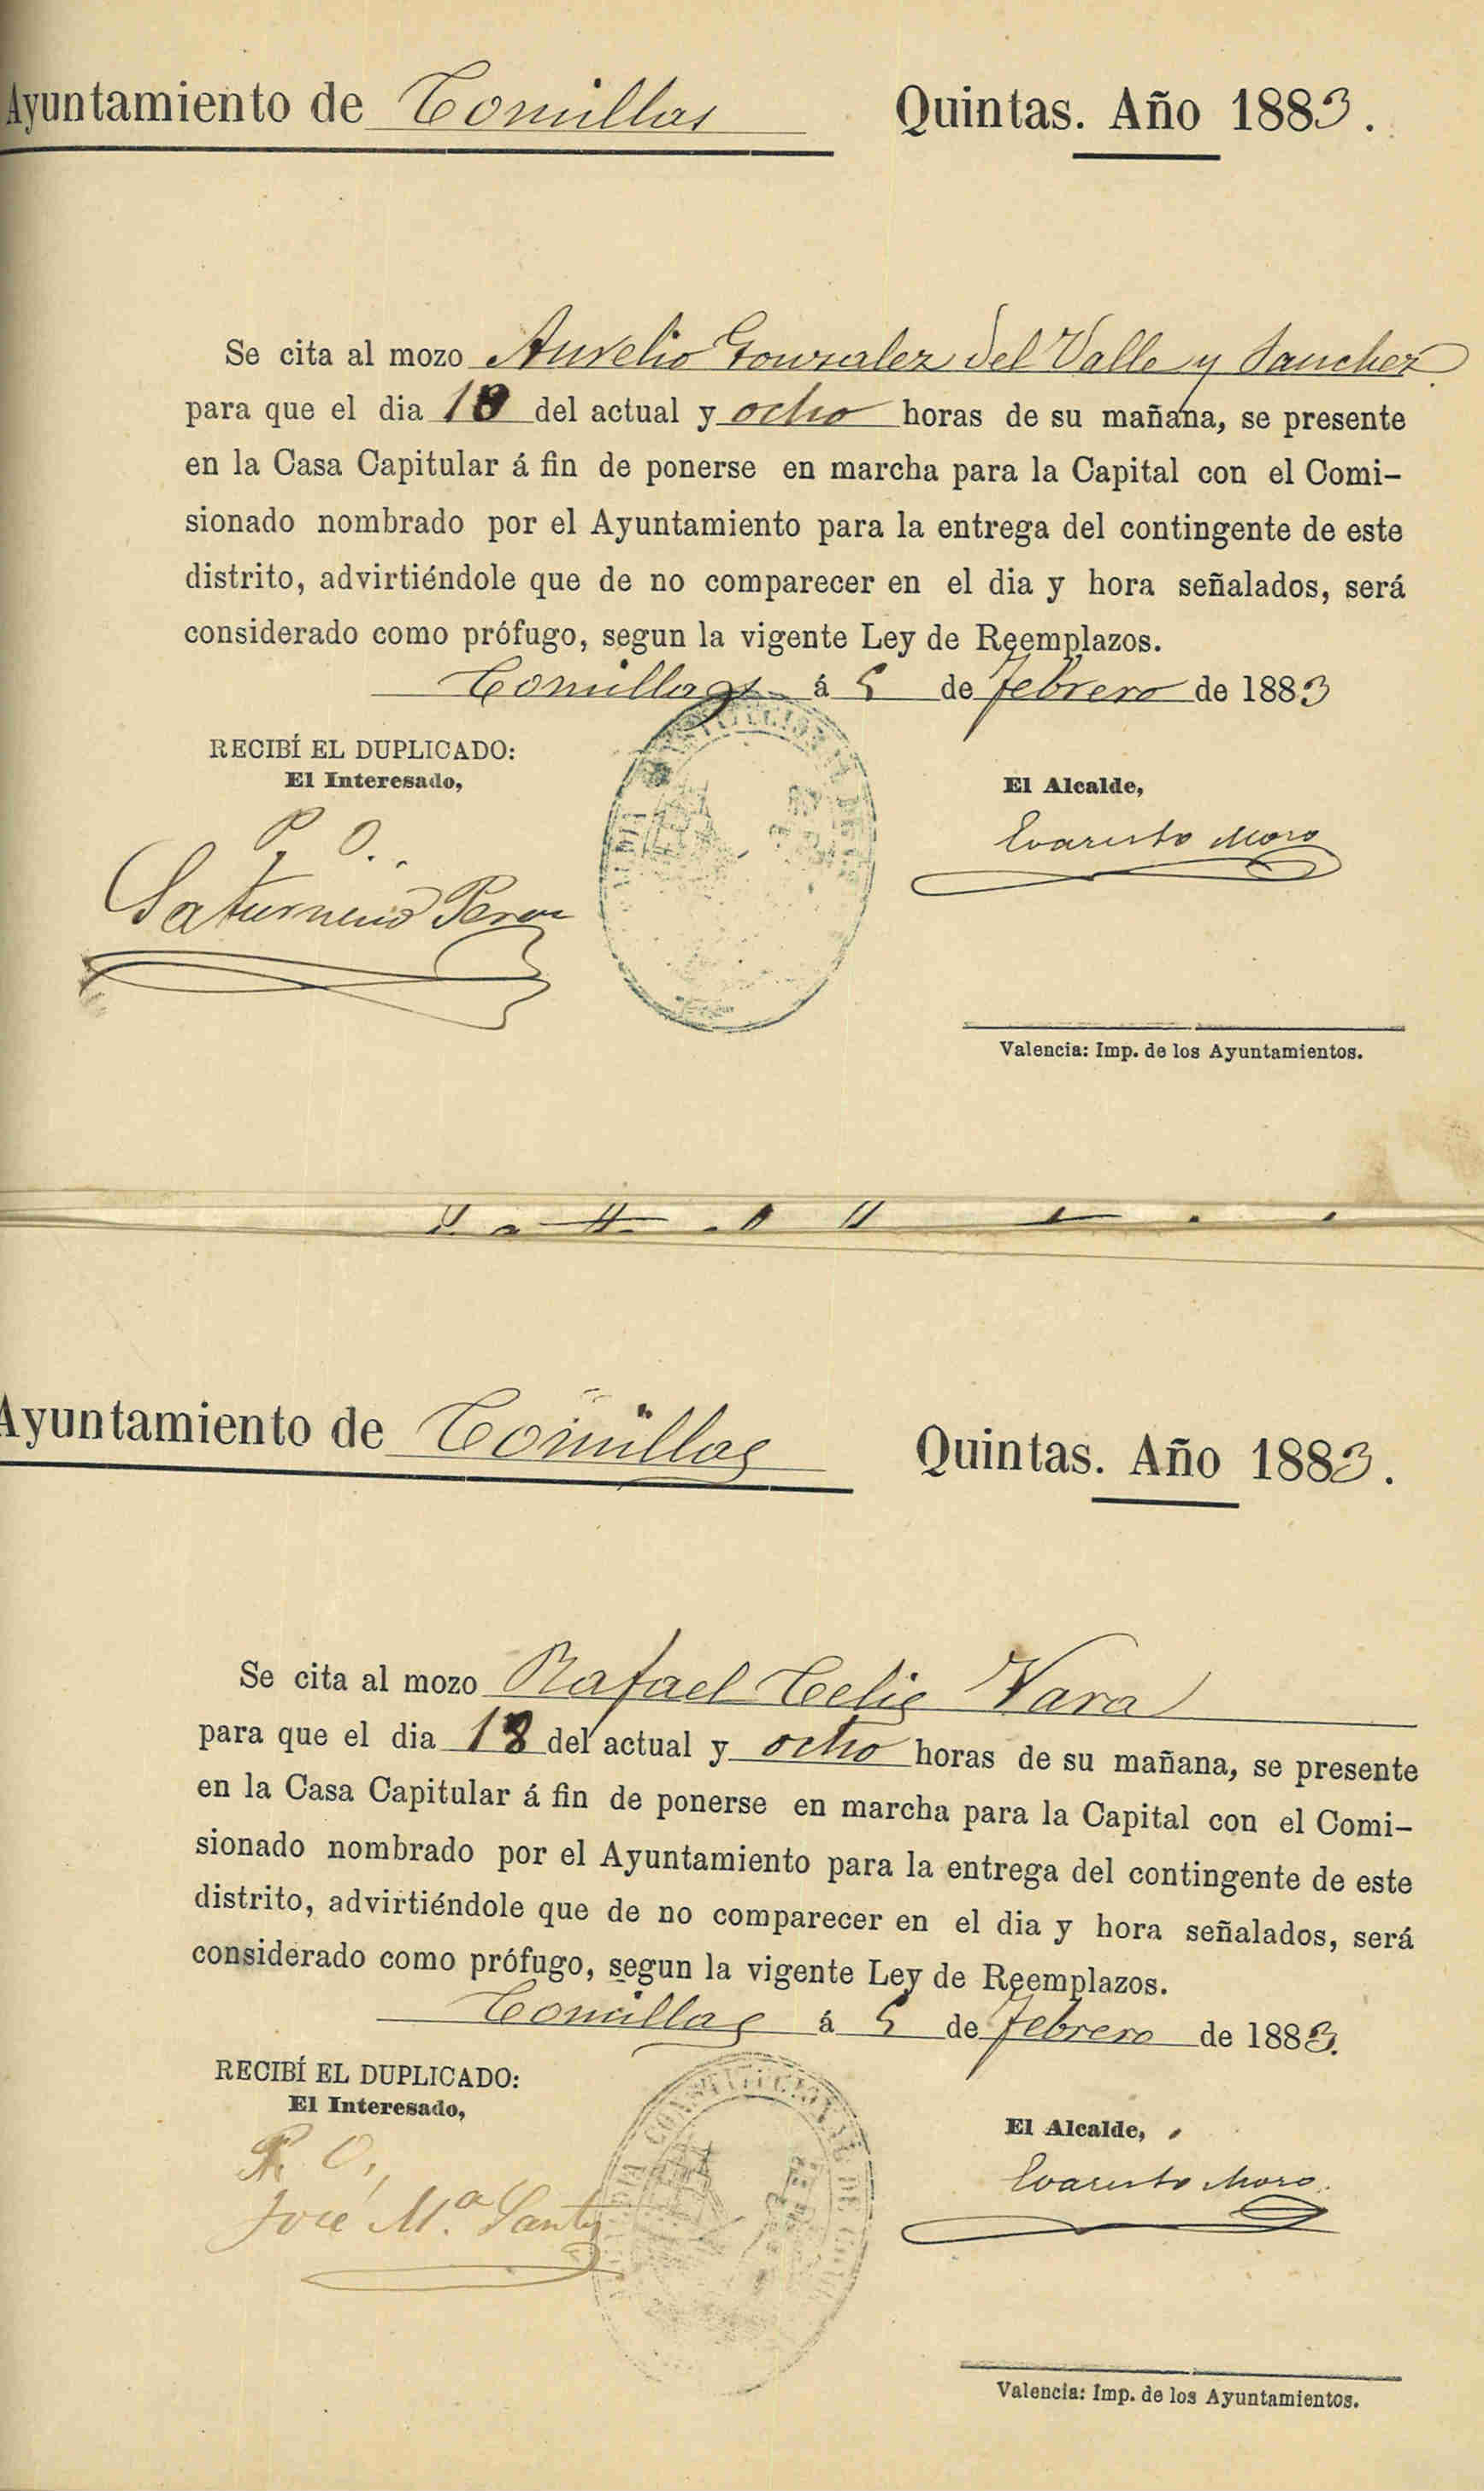 Ayuntamiento de Comillas Quintas. Año 1883.
Se cita al mozo Aurelio Gonzalez del Valle y Sanchez
para que el dia 18 del actual y ocho horas de su mañana, se presente
en la Casa Capitular á fin de ponerse en marcha para la Capital con el Comi-
sionado nombrado por el Ayuntamiento para la entrega del contingente de este
distrito, advirtiéndole que de no comparecer en el dia y hora señalados, será
considerado como prófugo, segun la vigente Ley de Reemplazos.
Comillas á 5 de febrero de 1883
RECIBÍ EL DUPLICADO:
El Interesado,
El Alcalde,
P. O.
Evaristo Moro
Saturnino
Valencia: Imp. de los Ayuntamientos.
Ayuntamiento de Comillas Quintas. Año 1883.
Se cita al mozo Rafael Celis Vara
para que el dia 18 del actual y ocho horas de su mañana, se presente
en la Casa Capitular á fin de ponerse en marcha para la Capital con el Comi-
sionado nombrado por el Ayuntamiento para la entrega del contingente de este
distrito, advirtiéndole que de no comparecer en el dia y hora señalados, será
considerado como prófugo, segun la vigente Ley de Reemplazos.
Comillas á 5 de febrero de 1883.
RECIBÍ EL DUPLICADO:
El Interesado,
El Alcalde,
P. O.
Evaristo Moro.
José M.ª
CONSTITUCIONAL DE
Valencia: Imp. de los Ayuntamientos.